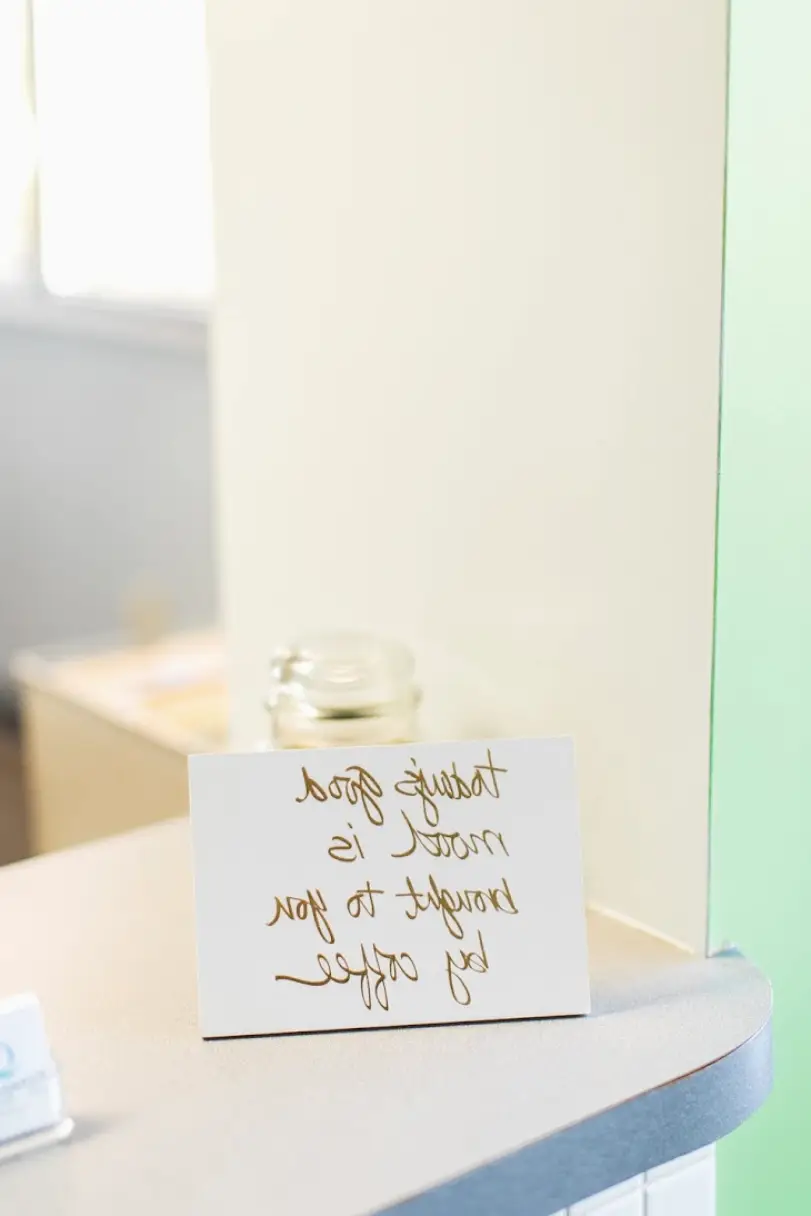 today's good
mood is
brought to you
by coffee